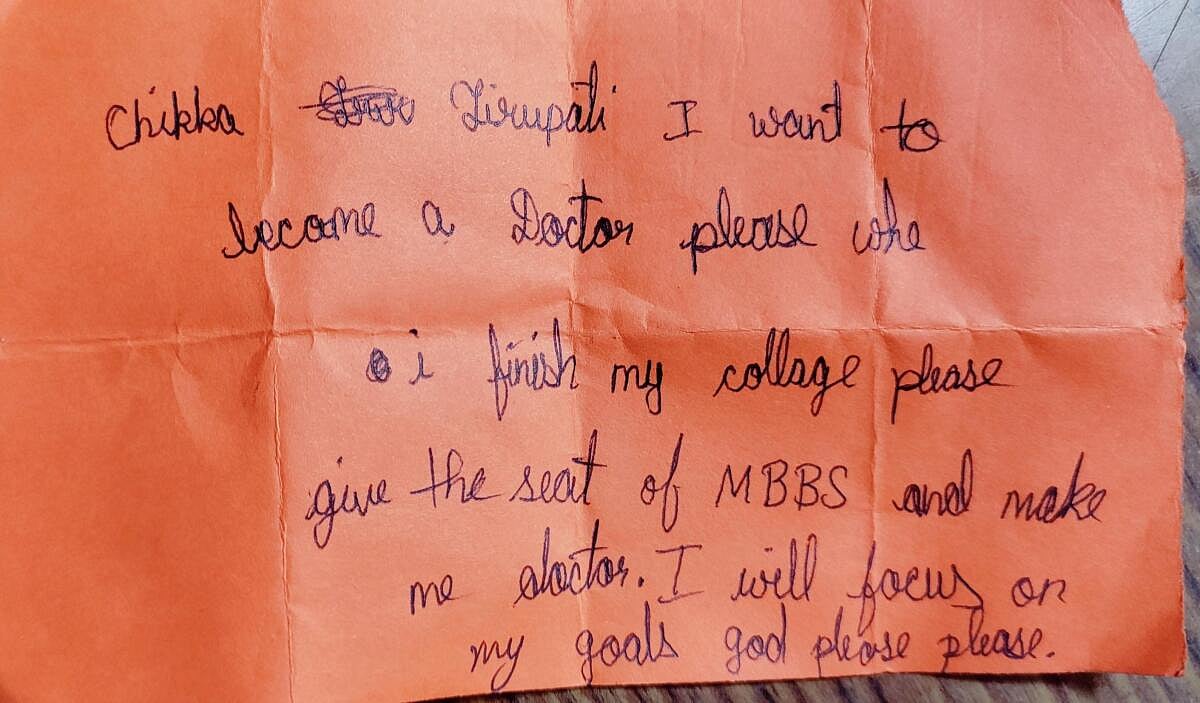 Chikka Tirupati I want to
become a Doctor please whe
i finish my collage please
give the seat of MBBS and make
me doctor. I will focus on
my goals god please please.